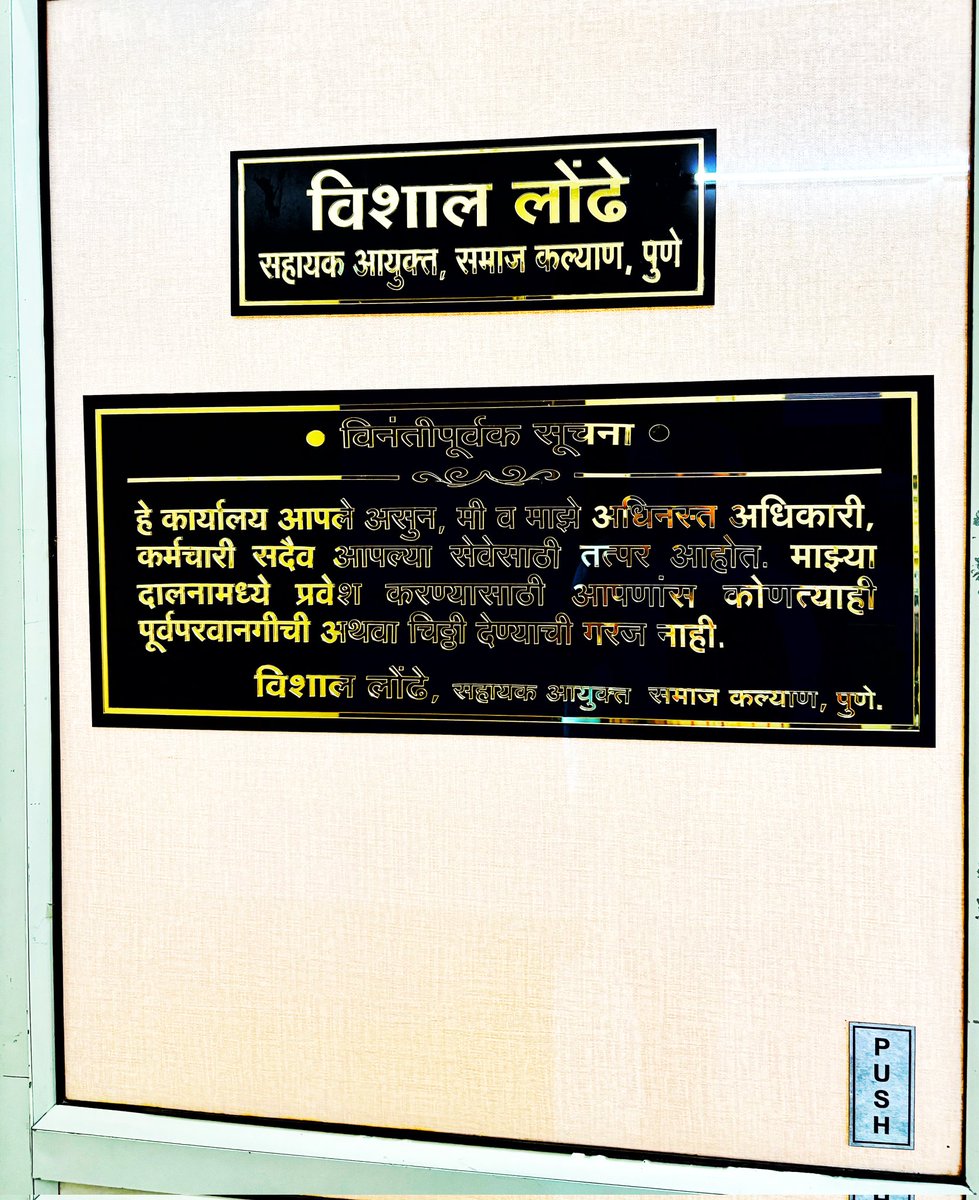 विशाल लोंढे
सहायक आयुक्त, समाज कल्याण, पुणे
विनंतीपूर्वक सूचना
हे कार्यालय आपले असुन, मी व माझे अधिनस्त अधिकारी,
कर्मचारी सदैव आपल्या सेवेसाठी तत्पर आहोत. माझ्या
दालनामध्ये प्रवेश करण्यासाठी आपणांस कोणत्याही
पूर्वपरवानगीची अथवा चिठ्ठी देण्याची गरज नाही.
विशाल लोंढे, सहायक आयुक्त समाज कल्याण, पुणे.
PUSH